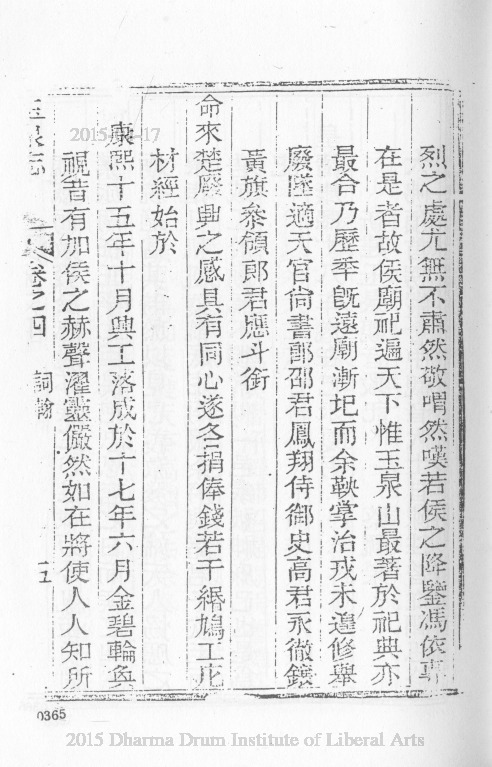 烈之處尤無不肅然敬喟然嘆若侯之降鑒馮依專
在是者故侯廟祀遍天下惟玉泉山最著於祀典亦
最合乃歷年旣遠廟漸圮而余鞅掌治戎未遑修舉
廢墜適天官尚書郎邵君鳳翔侍御史高君永徹鑲
黃旗叅領郎君應斗銜
命來楚廢興之感具有同心遂各捐俸錢若干緡鳩工庀
材經始於
康熙十五年十月興工落成於十七年六月金碧輪奐
視昔有加侯之赫聲濯靈儼然如在將使人人知所
玉泉志
卷之四
詞翰
五
0365
2015 Dharma Drum Institute of Liberal Arts